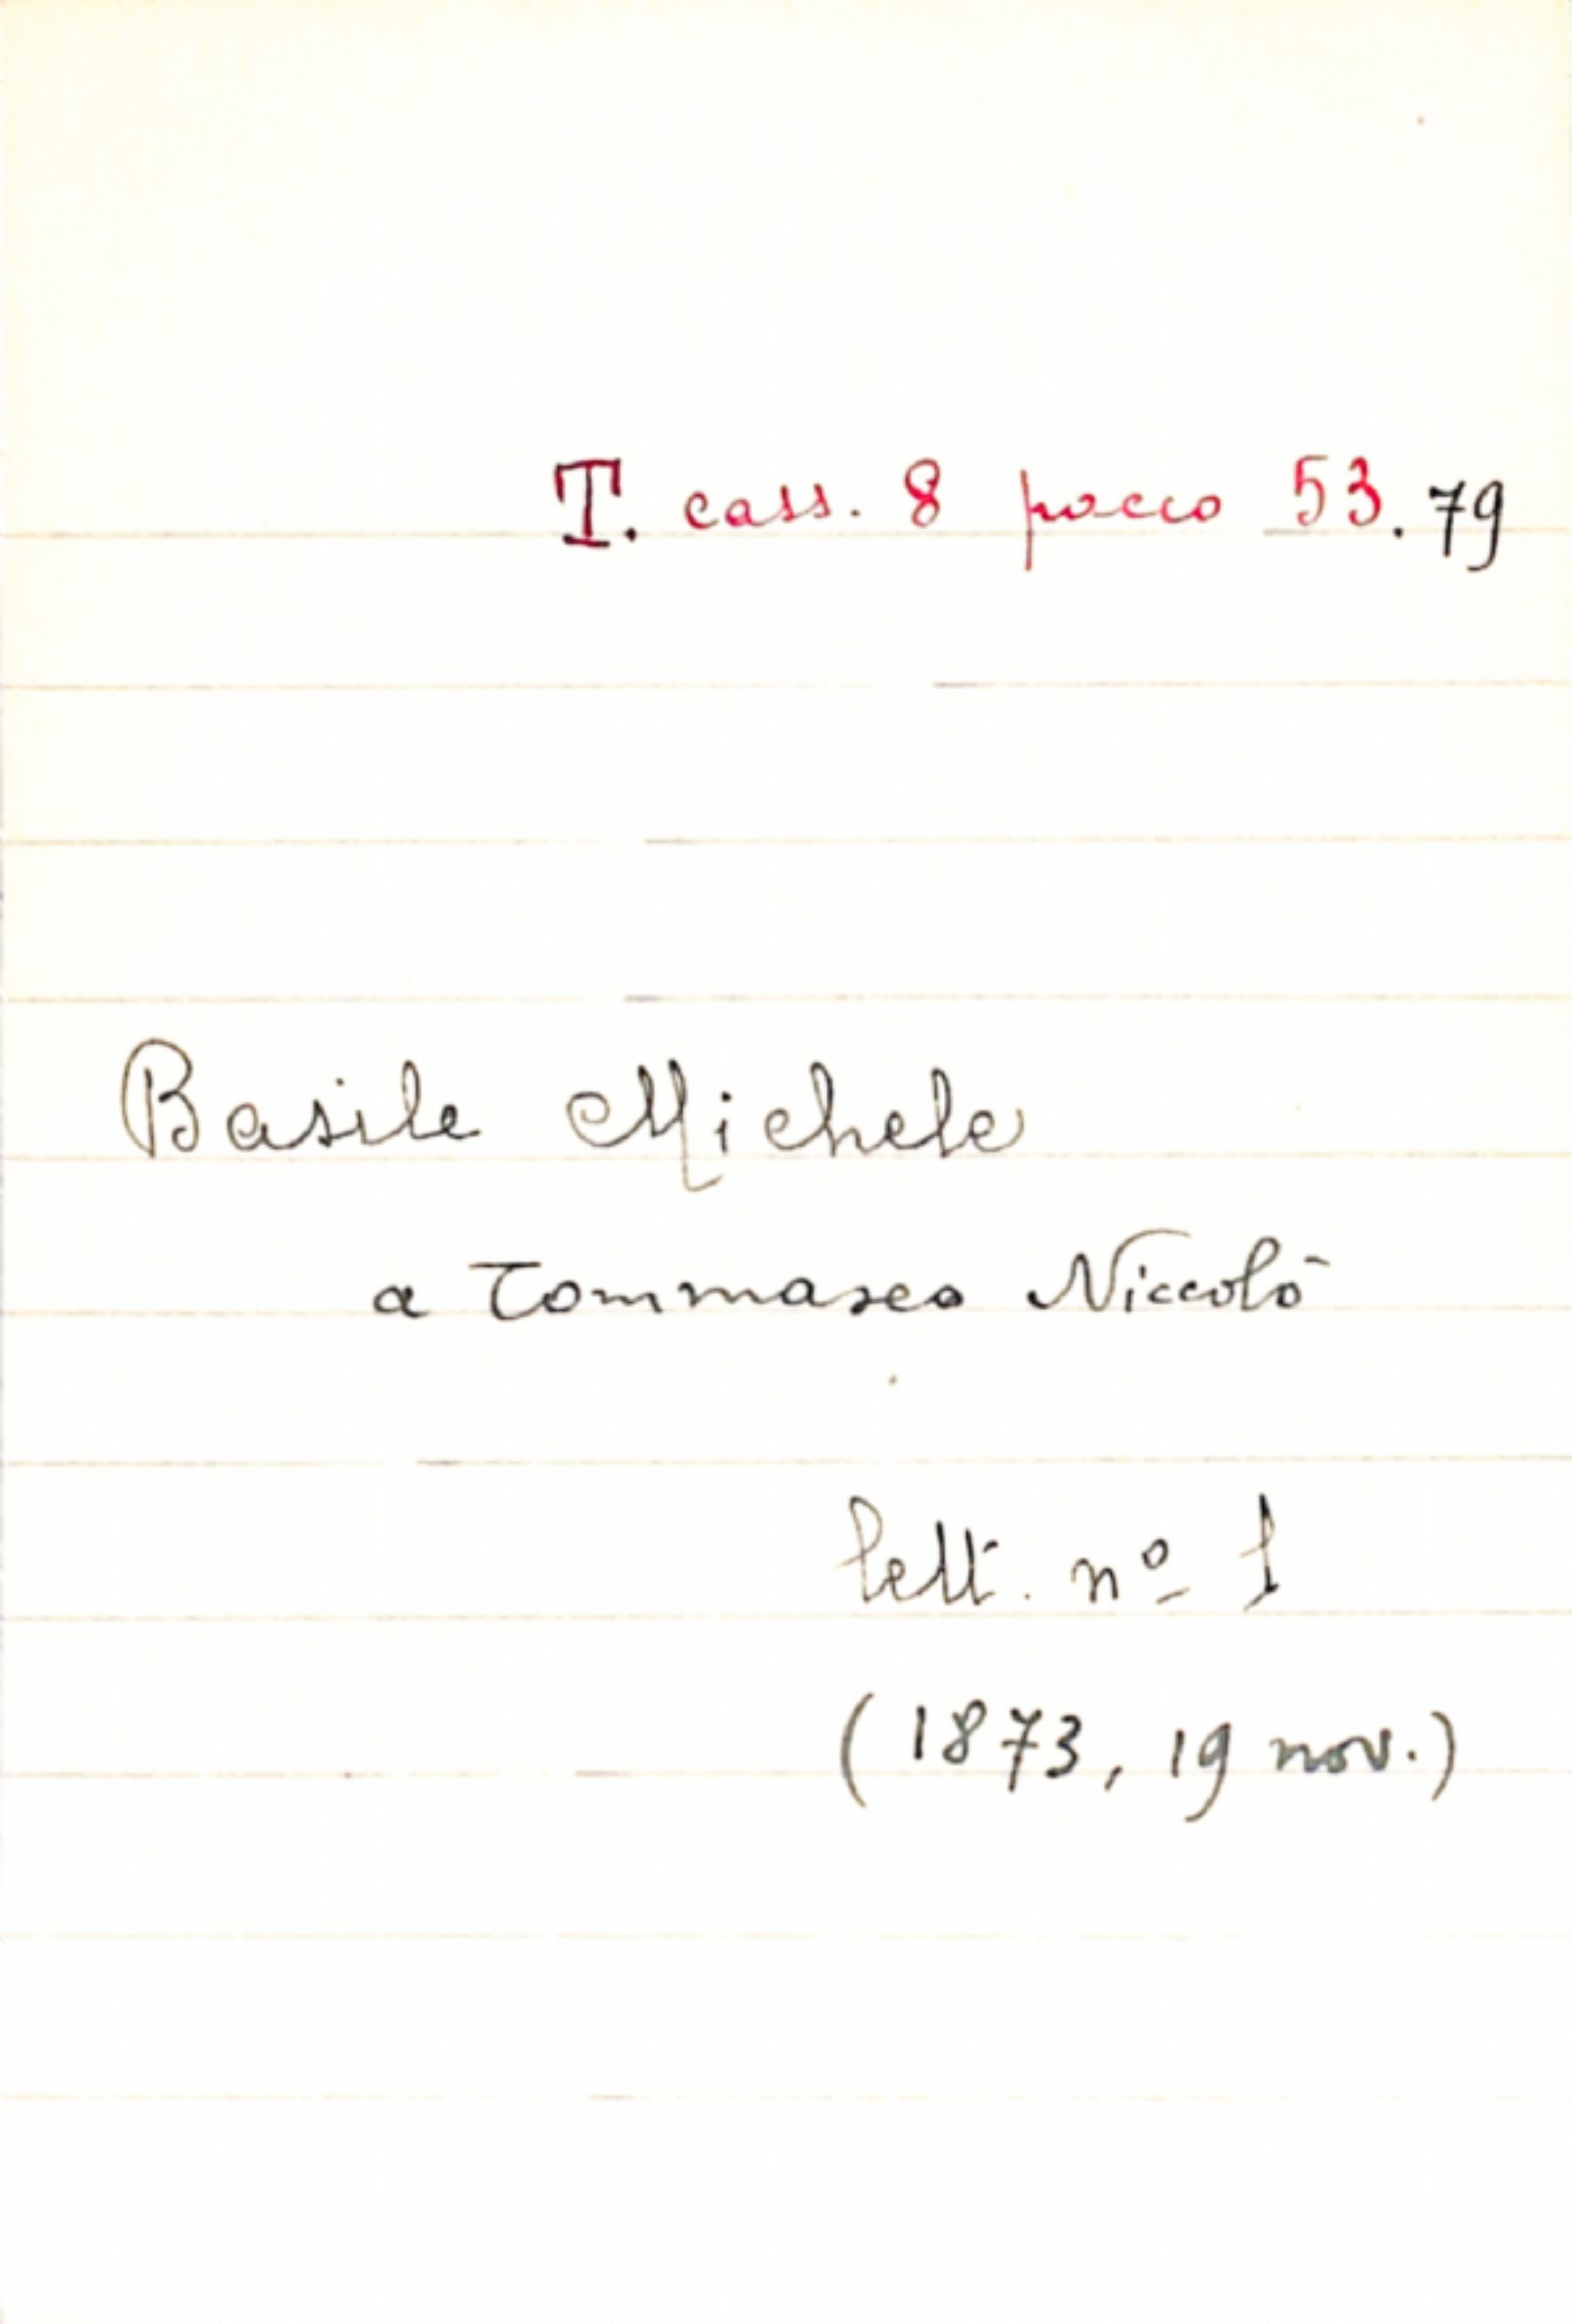 T. cass. 8 pacco 53.79
Basile Michele
a Tommaseo Niccolò
lett. nº 1
(1873, 19 nov.)